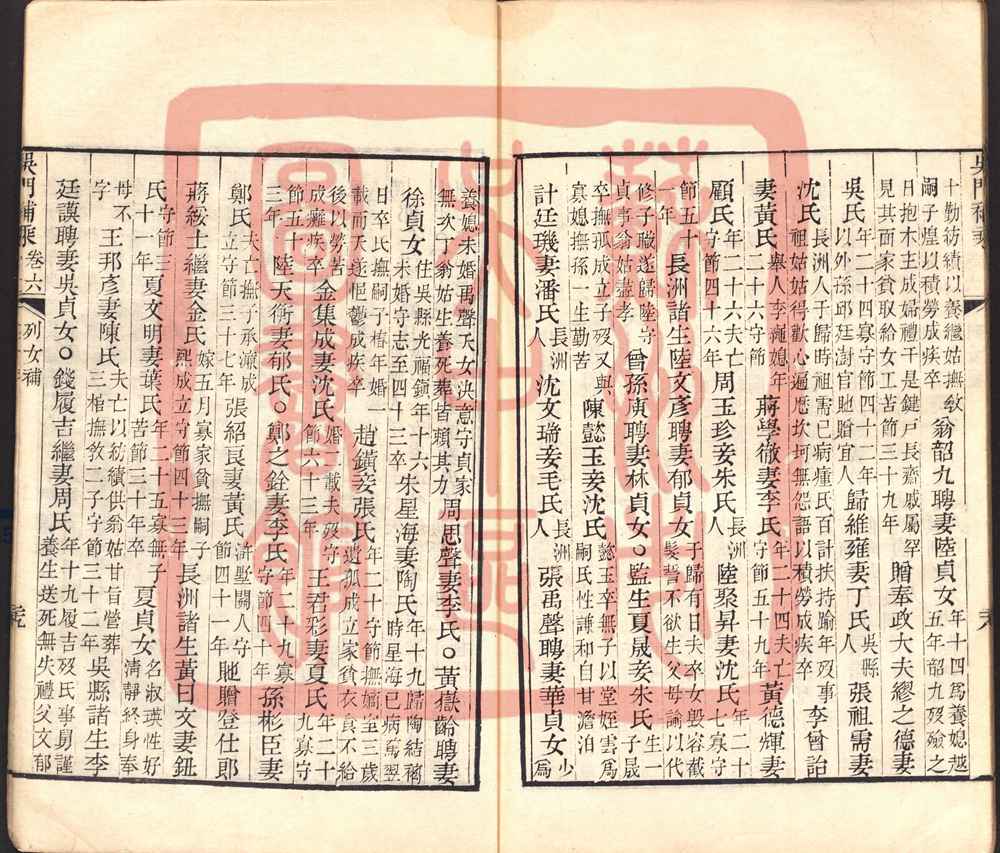 十勤紡績以養繼姑撫敏
嗣子煌以積勞成疾卒
翁韶九聘妻陸貞女
年十四爲養媳越
五年韶九歿殮之
日抱木主成婦禮于是鍵戶長齋戚屬罕
見其面家貧取給女工苦節三十九年
贈奉政大夫繆之德妻
吳氏
年二十四寡守節四十二年
以外孫邱廷澍官貤贈宜人
歸維雍妻丁氏
吳縣
人
張祖需妻
沈氏
長洲人于歸時祖需已病瘇氏百計扶持踰年歿事
祖姑姑得歡心遍歷坎坷無怨語以積勞成疾卒
李曾詒
妻黃氏
舉人李
媳年
二十六守節
蔣學徵妻李氏
年二十四夫亡
守節五十九年
黃德輝妻
顧氏
年二十六夫亡
守節四十六年
周玉珍妾朱氏
長洲
人
陸聚昇妻沈氏
年二十
七寡守
節五十
一年
長洲諸生陸文彥聘妻郁貞女
子歸有日夫卒女毀容截
髮誓不欲生父母諭以代
修子職遂歸陸守
貞事翁姑盡孝
曾孫演聘妻林貞女○監生夏晟妾朱氏
生一
子晟
卒撫孤成立子歿又與
寡媳撫孫一生勤苦
陳懿玉妾沈氏
懿玉卒無子以堂姪雲爲
嗣氏性謙和自甘澹泊
計廷璣妻潘氏
長洲
人
沈文瑞妾毛氏
長洲
人
張禹聲聘妻華貞女
少
爲
養媳未婚禹聲夭女決意守貞家
無次丁翁姑生養死葬皆賴其力
周思聲妻李氏○黃嶽齡聘妻
徐貞女
住吳縣光福鎮年十六
未婚守志至四十三卒
朱星海妻陶氏
年十九歸陶結褵
時星海已病篤翌
日卒氏撫嗣子椿年婚一
載而夭遂悒鬱成疾卒
趙鐄妾張氏
年二十守節撫嫡室三歲
遺孤成立家貧衣食不給
後以勞苦
成癱疾卒
金集成妻沈氏
婚二載夫歿守
節六十三年
王君彩妻夏氏
年二十
九寡守
節五十
三年
陸天衡妻郁氏○鄭之銓妻李氏
年二十九寡
守節四十年
孫彬臣妻
鄭氏
夫亡撫子承源成
立守節三十七年
張紹良妻黃氏
滸墅關人守
節四十一年
貤贈登仕郎
蔣綏士繼妻金氏
嫁五月寡家貧撫嗣子
熙成立守節四十三年
長洲諸生黃曰文妻鈕
氏
守節三
十一年
夏文明妻葉氏
年二十五寡無子
苦節三十年卒
夏貞女
名淑瑛性好
清靜終身奉
母不
字
王邦彥妻陳氏
夫亡以紡績供翁姑甘旨營葬
三棺撫教二子守節三十二年
吳縣諸生李
廷謨聘妻吳貞女○錢履吉繼妻周氏
年十九履吉歿氏事舅謹
養生送死無失禮父文郁
吳門補乘 卷六 列女補